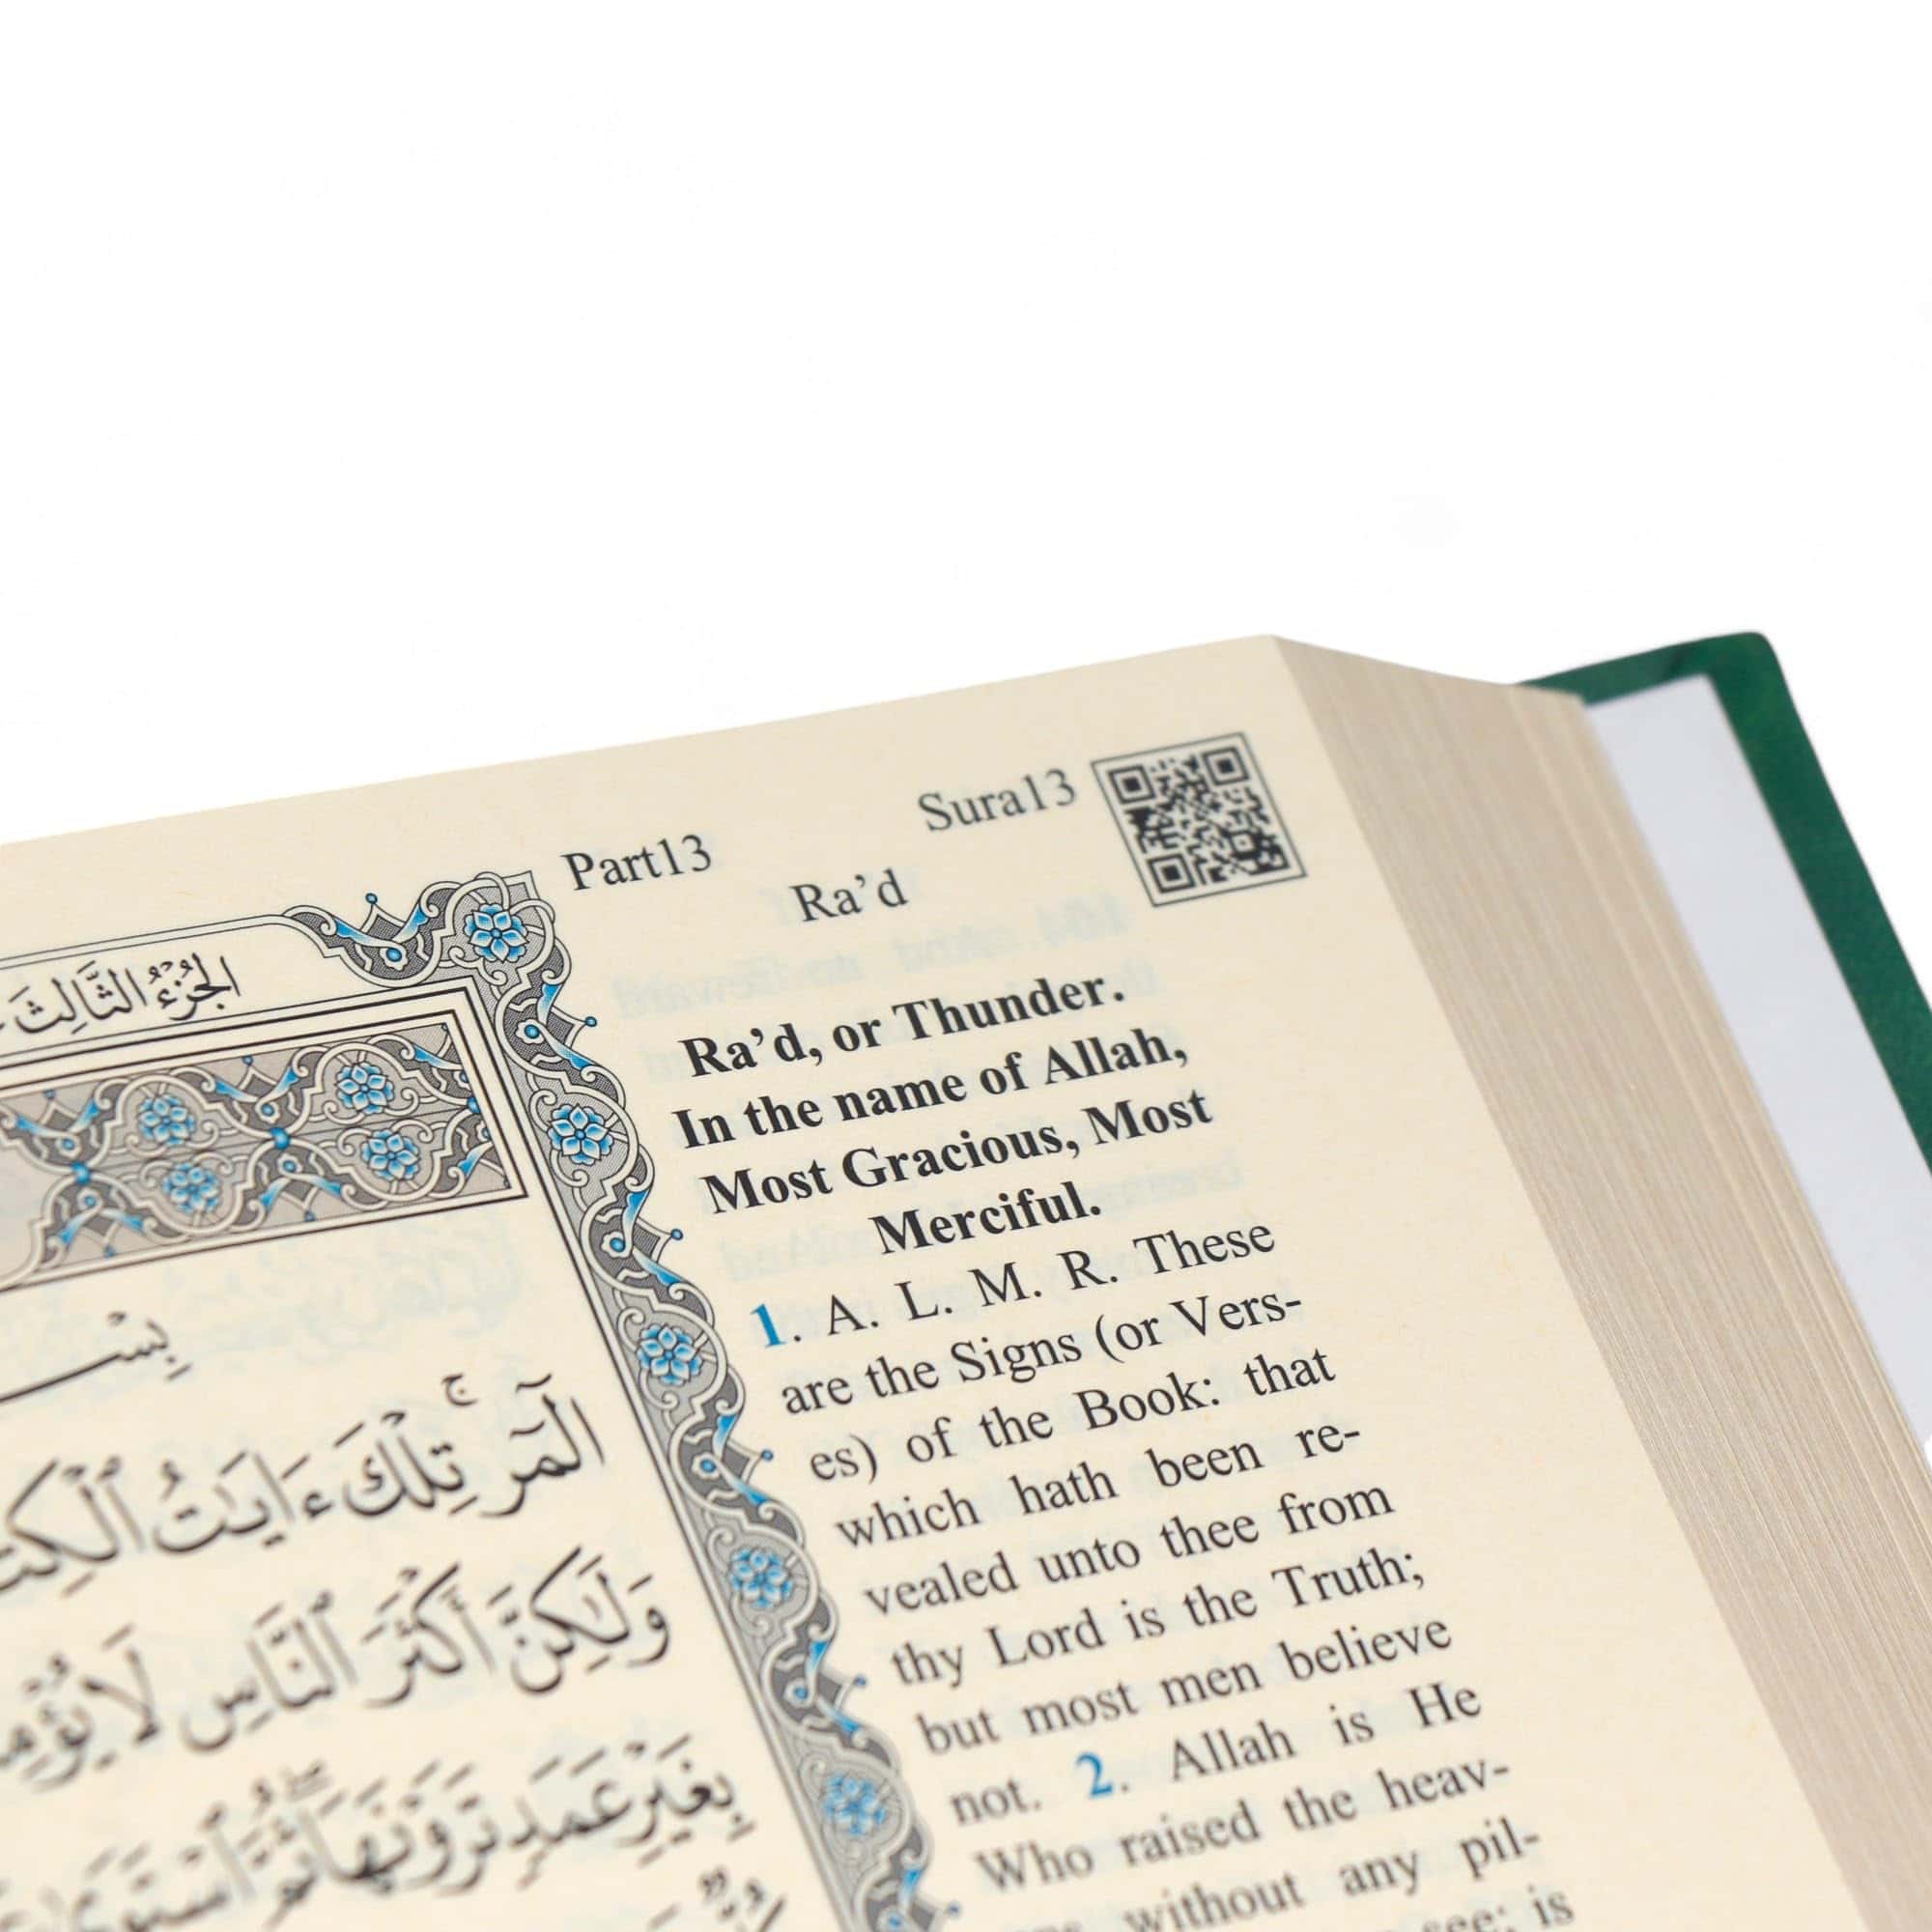 Part13
Sura13
Ra’d
Ra’d, or Thunder.
In the name of Allah,
Most Gracious, Most
Merciful.
1. A. L. M. R. These
are the Signs (or Vers-
es) of the Book: that
which hath been re-
vealed unto thee from
thy Lord is the Truth;
but most men believe
not. 2. Allah is He
Who raised the heav-
without any pil-
see; is
الجُزْءُ الثَّالِثَ
بِسْـ
الٓمٓر ۚ تِلْكَ ءَايَٰتُ
وَلَٰكِنَّ أَكْثَرَ ٱلنَّاسِ لَا
بِغَيْرِ عَمَدٍ تَرَوْنَهَا ۖ ثُمَّ